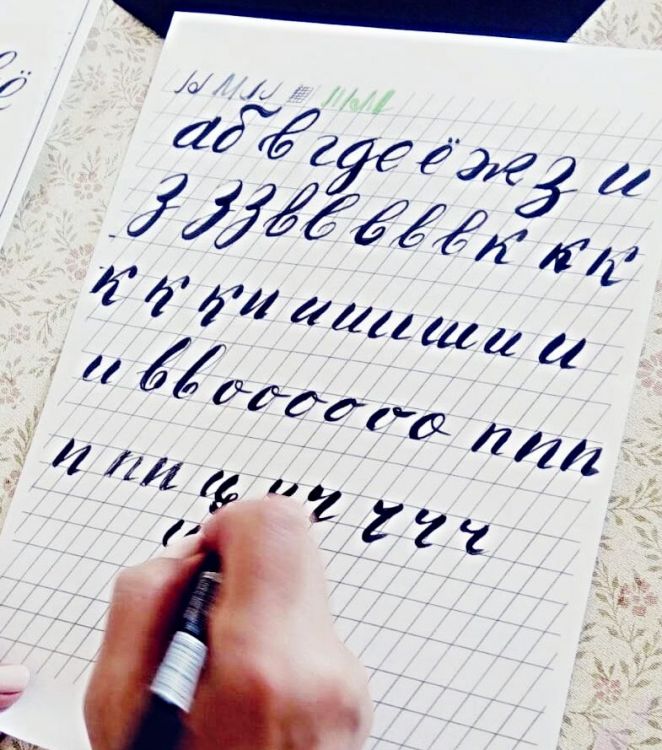 а б в г д е ё ж з и
з з з в в в в в к к к
к к к и и и и и ш и и
и в в о о о о о о п п п
п п п ц ч ч ч ч